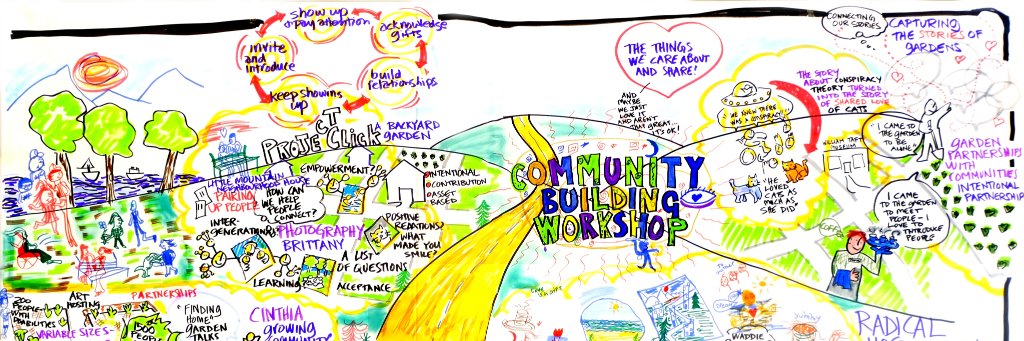 show up
+ pay attention
acknowledge
gifts
build
relationships
keep showing
up
invite
and
introduce
PROJECT CLICK
A BACKYARD
GARDEN
LITTLE MOUNTAIN
NEIGHBOURHOOD HOUSE
PAIRING
UP PEOPLE
EMPOWERMENT?
HOW CAN
WE HELP
PEOPLE
CONNECT?
INTER-
GENERATIONAL
PHOTOGRAPHY
BRITTANY
A LIST
OF QUESTIONS
LEARNING
ACCEPTANCE
INTENTIONAL
CONTRIBUTION
ASSET
BASED
POSITIVE
WHAT
MADE YOU
SMILE?
200
PEOPLE
WITH
DISABILITIES
ART
HOSTING
VARIABLE SIZES
1500
PEOPLE
PARTNERSHIPS
"FINDING
HOME"
GARDEN
TALKS
CINTHIA
GROWING
COMMUNITY
COMMUNITY
BUILDING
WORKSHOP
THE THINGS
WE CARE ABOUT
AND SHARE!
AND
MAYBE
WE JUST
LOVE IT
AND AREN'T
THAT GREAT
IT'S OK!
"WE KNEW THERE
WAS A CONSPIRACY"
THE STORY
ABOUT CONSPIRACY
THEORY TURNED
INTO THE STORY
OF SHARED LOVE
OF CATS
"HE
LOVED
CATS AS
MUCH AS
SHE DID"
WILLIAM TAFT
CONNECTING
OUR STORIES
CAPTURING
THE STORIES OF
GARDENS
I CAME TO
THE GARDEN
TO BE
ALONE
GARDEN
PARTNERSHIPS
WITH
COMMUNITIES
INTENTIONAL
PARTNERSHIP
I CAME
TO THE GARDEN
TO MEET
PEOPLE - I
LOVE TO
INTRODUCE
PEOPLE
COFFEE
WADDLE
yummy
RADICAL